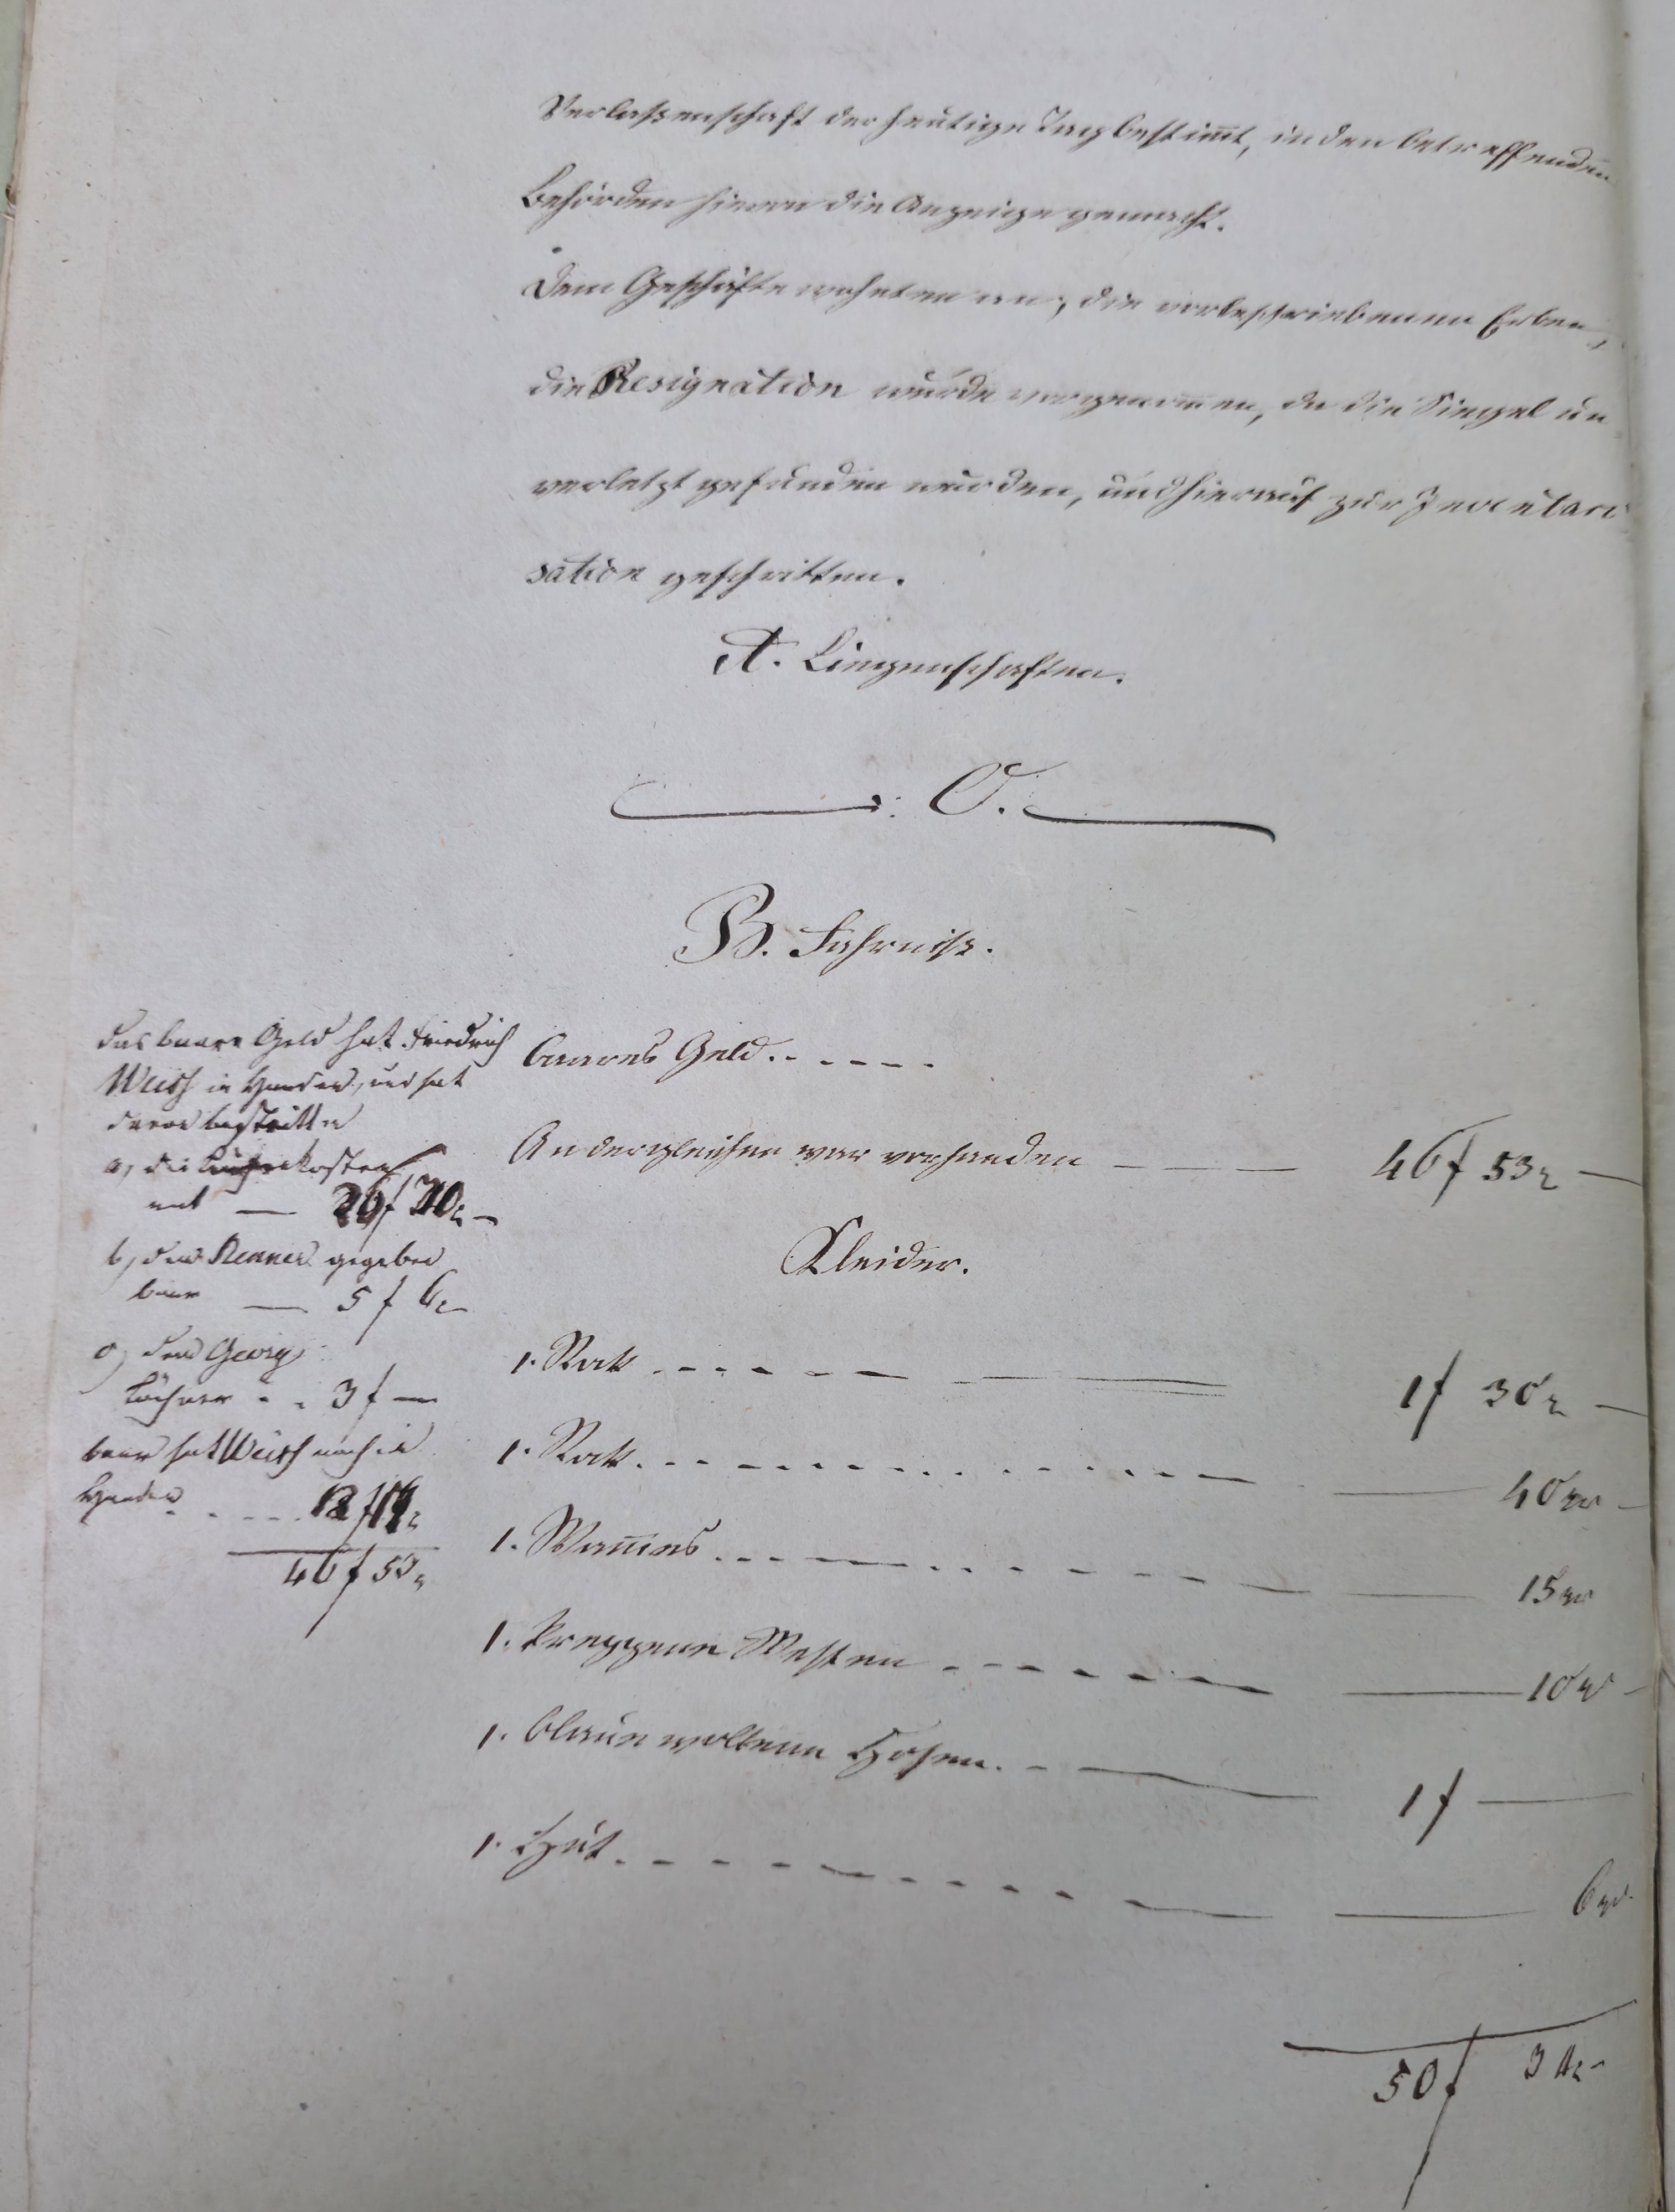 Verlaßenschaft der heutige Tag bestim̅t, u den betreffenden
Behörden hievon die Anzeige gemacht.
Dem Geschäfte wohnten an, die vorbeschriebenen Erben,
die Resignation wurde vorgenom̅en, da die Siegel un
verletzt gefunden wurden, und hierauf zur Inventari
sation geschritten.
A. Liegenschaften.
: O.
B. Fahrniß.
Baares Geld.
An dergleichen war vorhanden 46 f 53 x
Kleider.
1. Rock 1 f 30 x
1. Rock 40 xr
1. Wam̅es 15 xr
1. Weſten 10 xr
1. blaue wollene Hosen. 1 f
1. Hut 6 xr
50 f 34 x
das baare Geld hat Friedrich
Weish in Handen, und hat
davon bestritten
a, die kosten
mit 26 f 30 x
b, dem Renner gegeben
baar 5 f 6 x
c, dem Georg
3 f
baar hat Weish noch in
Handen 12 f 17 x
46 f 53 x